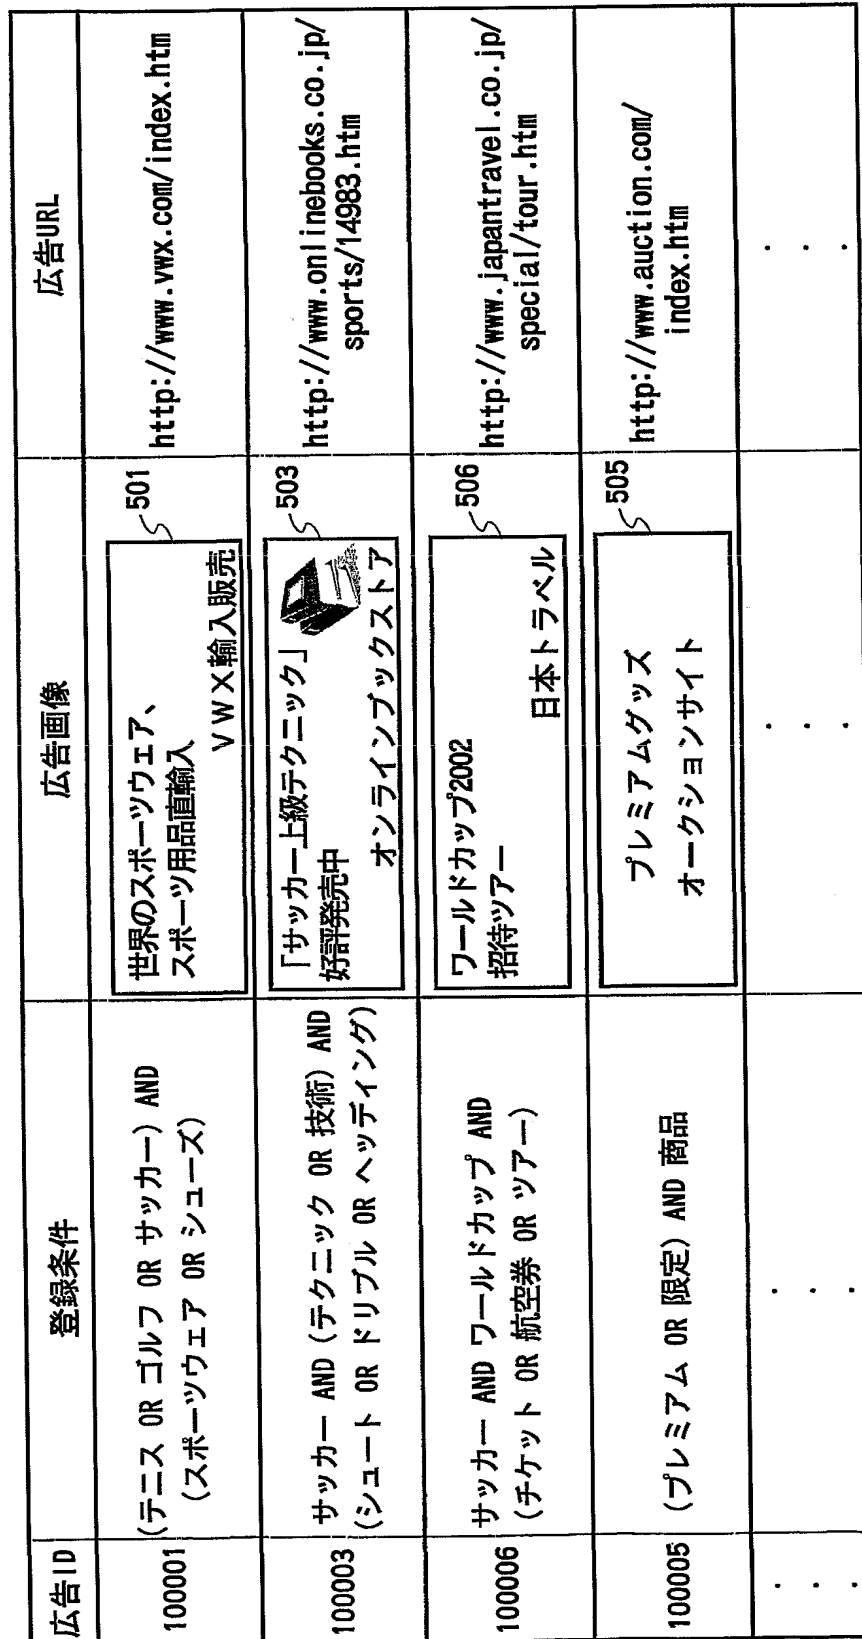 広告ID
登録条件
広告画像
広告URL
100001
(テニス OR ゴルフ OR サッカー) AND
(スポーツウェア OR シューズ)
世界のスポーツウェア、
スポーツ用品直輸入
VWX輸入販売
501
http://www.vwx.com/index.htm
100003
サッカー AND (テクニック OR 技術) AND
(シュート OR ドリブル OR ヘッディング)
「サッカー上級テクニック」
好評発売中
オンラインブックストア
503
http://www.onlinebooks.co.jp/
sports/14983.htm
100006
サッカー AND ワールドカップ AND
(チケット OR 航空券 OR ツアー)
ワールドカップ2002
招待ツアー
日本トラベル
506
http://www.japantravel.co.jp/
special/tour.htm
100005
(プレミアム OR 限定) AND 商品
プレミアムグッズ
オークションサイト
505
http://www.auction.com/
index.htm